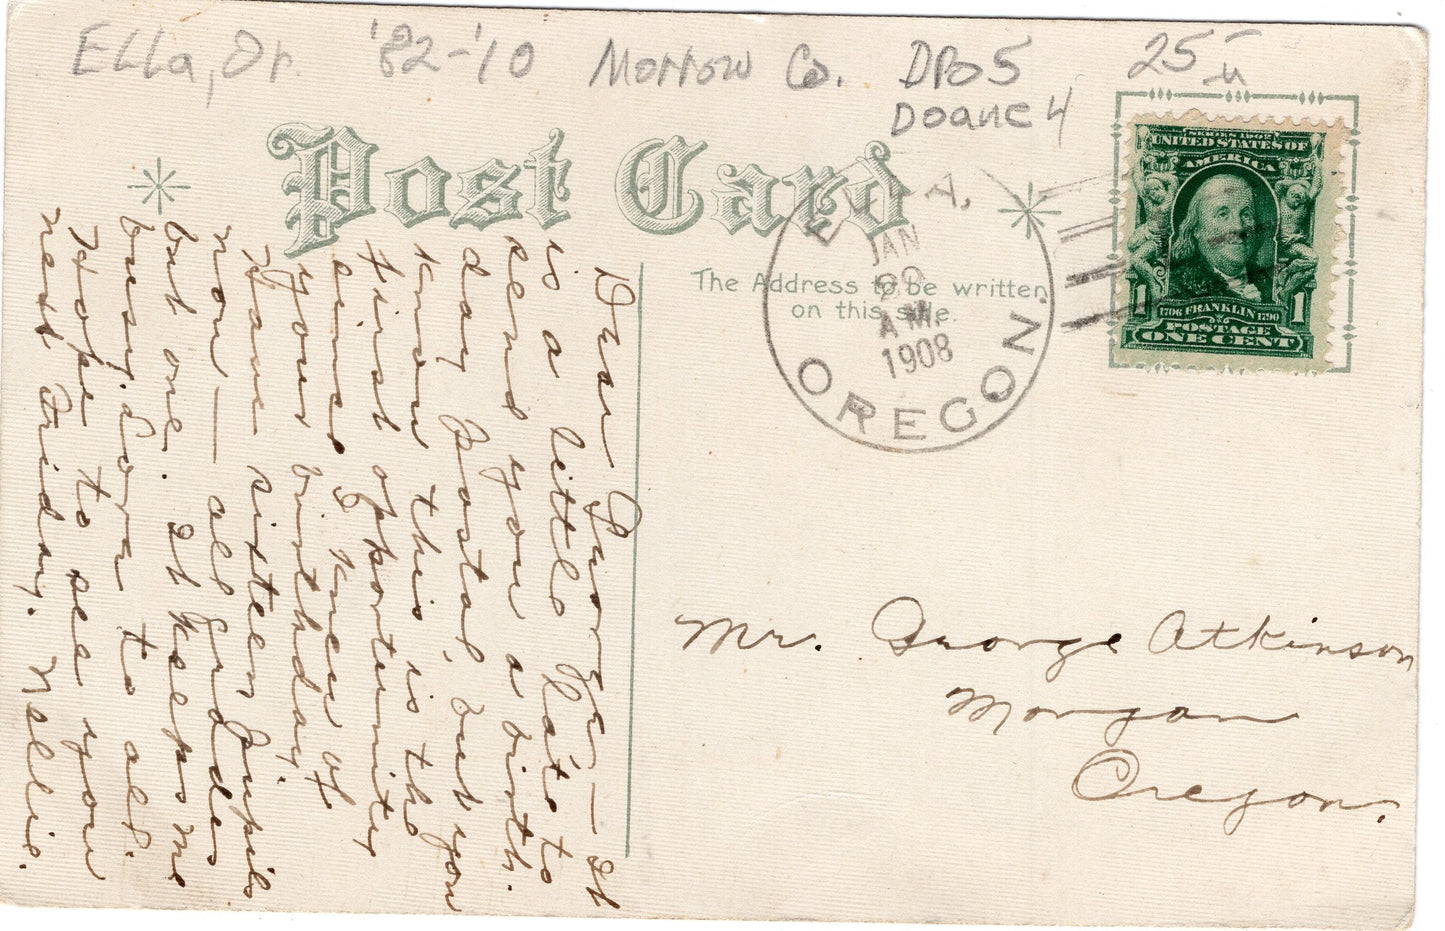 Ella, Or. '82-'10 Morrow Co. DPO5 25
Doane 4
Post Card
The Address to be written
on this side.
ELLA,
JAN
20
A.M.
1908
OREGON
SERIES 1902
UNITED STATES OF
AMERICA
1706 FRANKLIN 1790
1 1
POSTAGE
ONE CENT
Dear George,— It
is a little late to
send you a birth-
day postal, but you
know this is the
first opportunity
since I knew of
your birthday.
Have sixteen pupils
now — all grades
but one. It keeps me
busy. Love to all.
Hope to see you
next Friday. Nellie.
Mr. George Atkinson
Morgan
Oregon.